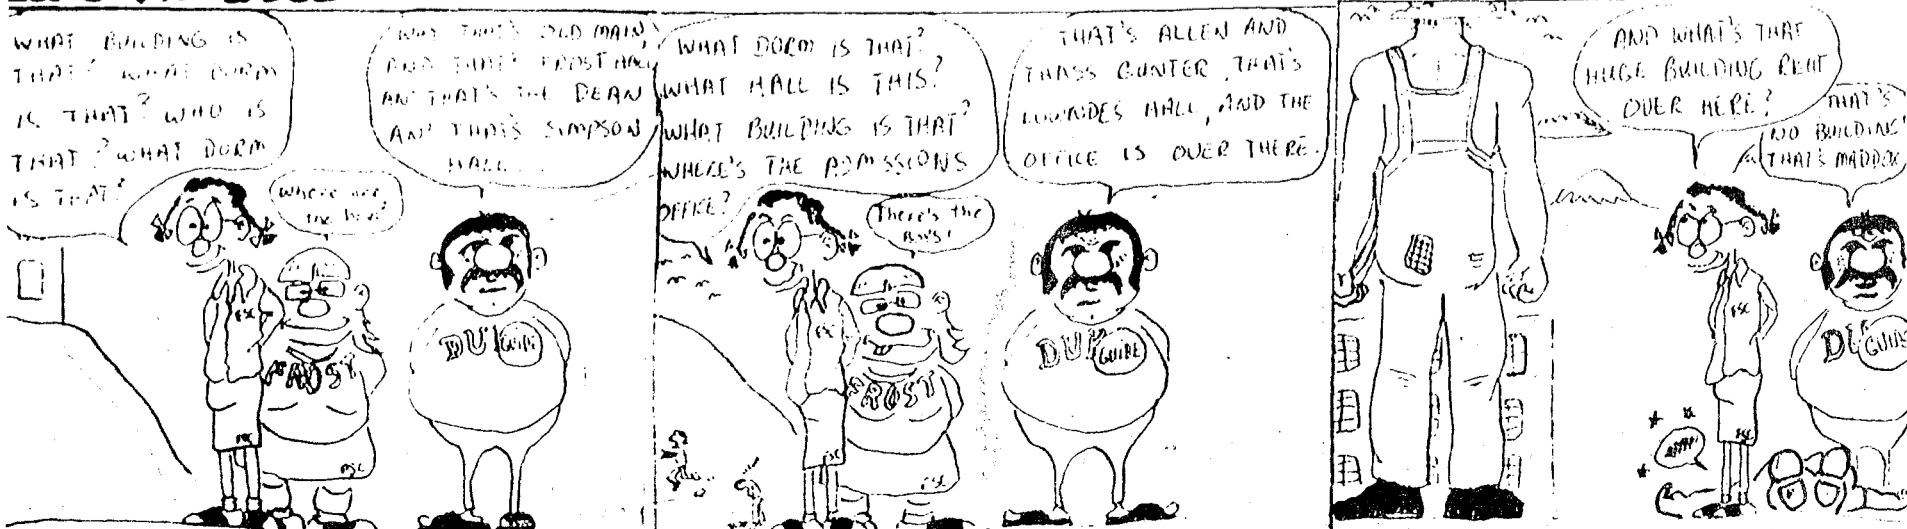 WHAT BUILDING IS
THAT? WHAT DORM
IS THAT? WHO IS
THAT? WHAT DORM
IS THAT?
Where are
the boys?
WHY THAT'S OLD MAIN,
AND THAT'S FROST HALL
AN' THAT'S THE DEAN
AN' THAT'S SIMPSON
HALL...
FSC
FROST
FSC
FSC
DU
GUIDE
WHAT DORM IS THAT?
WHAT HALL IS THIS?
WHAT BUILDING IS THAT?
WHERE'S THE ADMISSIONS
OFFICE?
There's the
boys!
THAT'S ALLEN AND
THASS GUNTER, THAT'S
LOWNDES HALL, AND THE
OFFICE IS OVER THERE.
FSC
FROST
FSC
FSC
DU
GUIDE
AND WHAT'S THAT
HUGE BUILDING RIGHT
OVER HERE?
THAT'S
NO BUILDING!
THAT'S MADDOX
FSC
FSC
DU
GUIDE